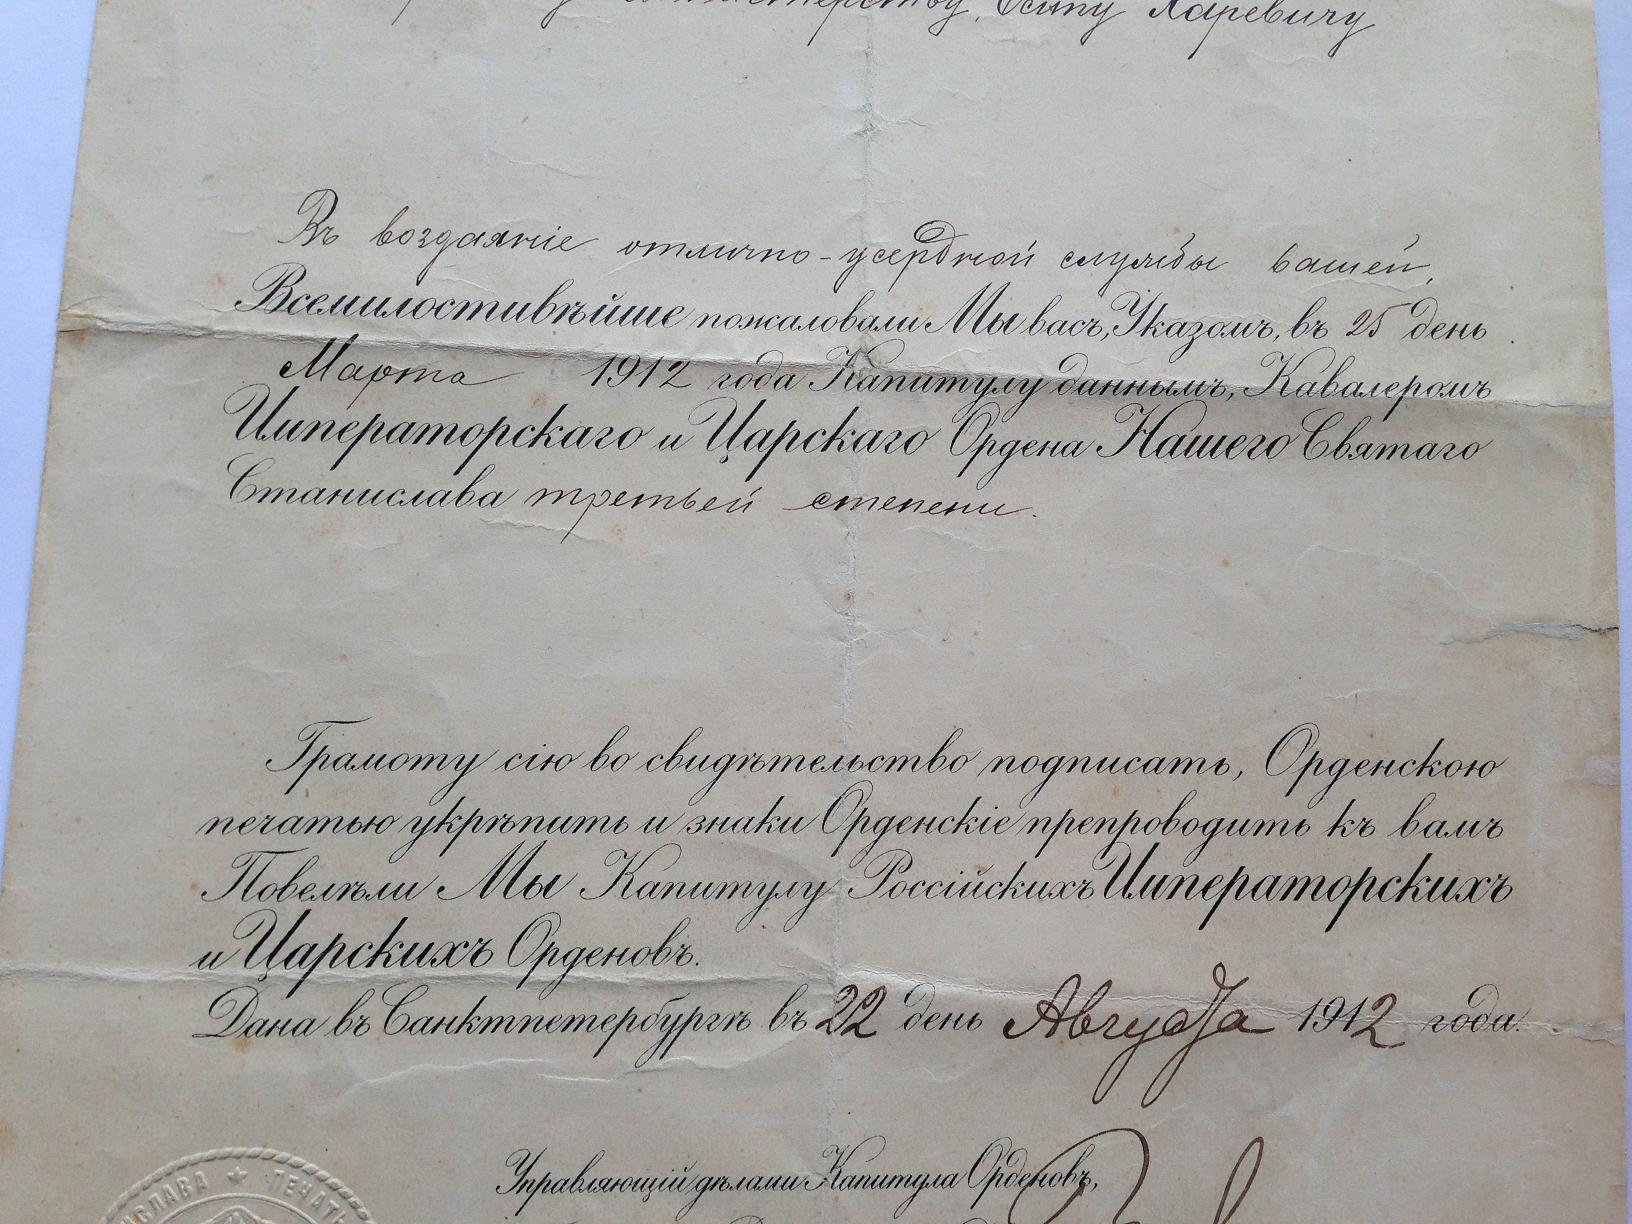 Осипу Харевичу
Въ воздаяніе отлично-усердной службы вашей,
Всемилостивѣйше пожаловали Мы васъ, Указомъ, въ 25 день
Марта 1912 года Капитулу даннымъ, Кавалеромъ
Императорскаго и Царскаго Ордена Нашего Святаго
Станислава третьей степени.
Грамоту сію во свидѣтельство подписать, Орденскою
печатью укрѣпить и знаки Орденскіе препроводить къ вамъ
Повелѣли Мы Капитулу Россійскихъ Императорскихъ
и Царскихъ Орденовъ.
Дана въ Санктпетербургѣ въ 22 день Августа 1912 года.
Управляющій дѣлами Капитула Орденовъ,
ИСЛАВА ★ ПЕЧАТЬ